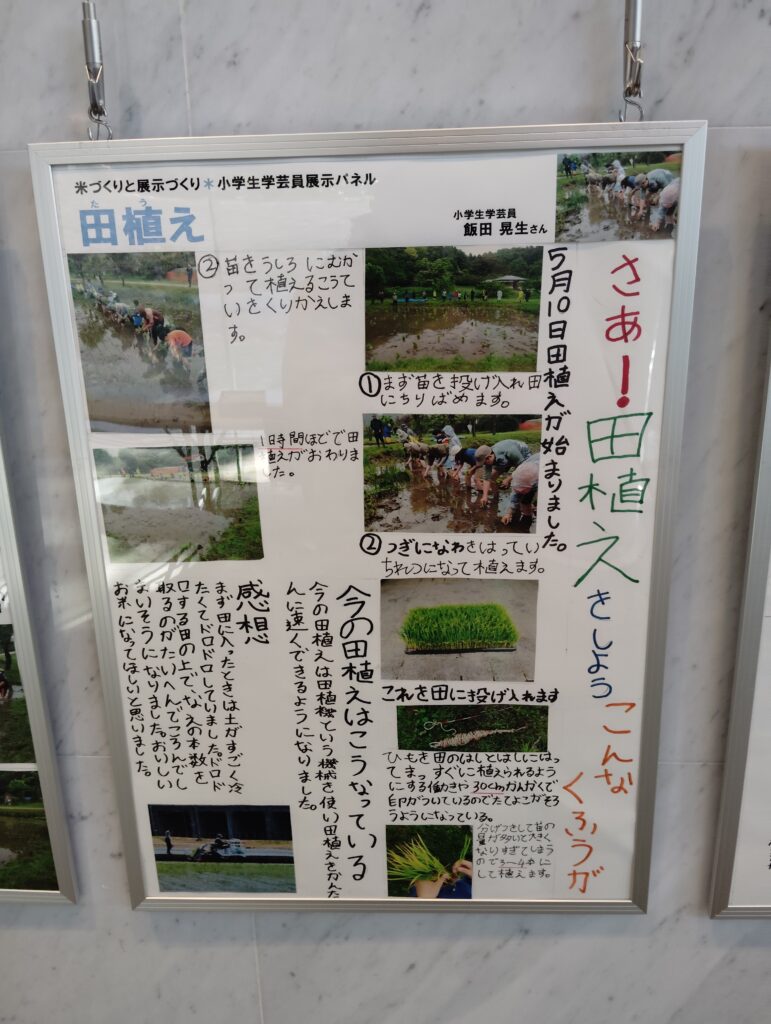 米づくりと展示づくり＊小学生学芸員展示パネル
たう
田植え
小学生学芸員
飯田 晃生さん
さあ！田植えをしよう こんな
くふうが
5月10日田植えが始まりました。
①まず苗を投げ入れ田
にちりばめます。
②つぎになわをはってい
ちれつになって植えます。
これを田に投げ入れます
ひもを田のはしとはしにはっ
てまっすぐに植えられるよう
にする働きや30cmかんかくで
印がついているのでたてよこがそろ
うようになっている。
分げつをして苗の
量が多いと大きく
なりすぎてしまう
ので3〜4本に
して植えます。
②苗をうしろにむか
って植えるこうて
いをくりかえしま
す。
1時間ほどで田
植えがおわりま
した。
今の田植えはこうなっている
今の田植えは田植機という機械を使い田植えをかんた
んに速くできるようになりました。
感想
まず田に入ったときは土がすごく冷
たくてドロドロしていました。ドロド
ロする田の上で、なえの本数を
取るのがたいへんでころんでし
まいそうになりました。おいしい
お米になってほしいと思いました。